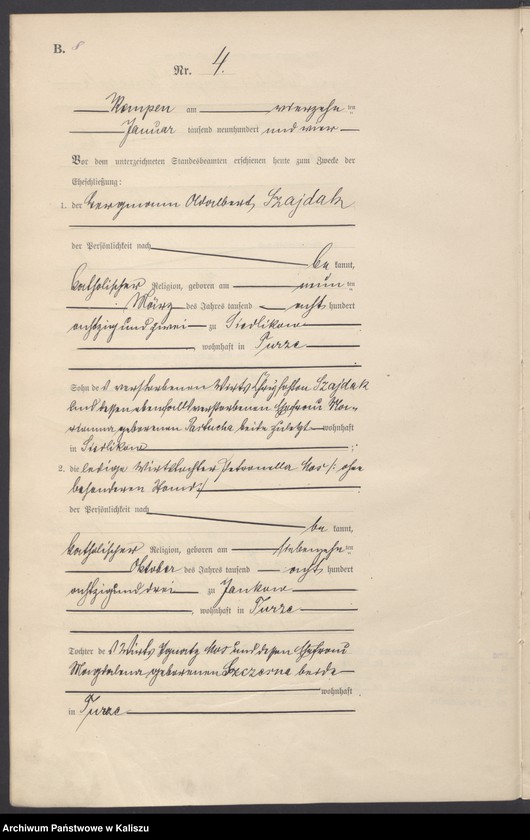 B. 8
Nr. 4.
Kempen am vierzehn ten
Januar tausend neunhundert und vier
Vor dem unterzeichneten Standesbeamten erschienen heute zum Zwecke der
Eheschließung:
1. der Bergmann Adalbert Szajdak
der Persönlichkeit nach
be kannt,
katholischer Religion, geboren am neun ten
März des Jahres tausend acht hundert
achtzig und zwei zu Siedlikow
, wohnhaft in Turze
Sohn des verstorbenen Wirts Szajdak
und dessen ebenfalls verstorbenen Ehefrau Ma-
rianna geborenen beide zuletzt wohnhaft
in Siedlikow
2. die ledige Wirtstochter Petronella Kos /: ohne
besonderen Stand :/
der Persönlichkeit nach
be kannt,
katholischer Religion, geboren am siebzehn ten
Oktober des Jahres tausend acht hundert
achtzig und drei zu Jankow
, wohnhaft in Turze
Tochter des Wirts Ignatz Kos und dessen Ehefrau
Magdalena geborenen Szczesna beide
wohnhaft
in Turze
Archiwum Państwowe w Kaliszu